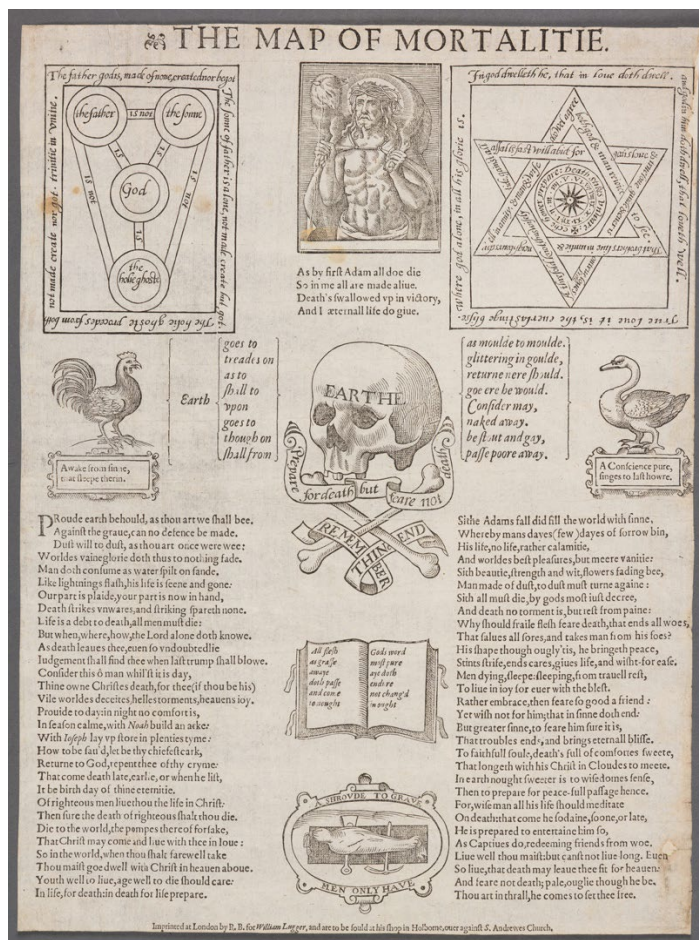 THE MAP OF MORTALITIE.
The father god is, made of none, created nor begot
The sonne of father is alone, not made create but got.
The holie ghoste procedes from both
not made create nor got. trinitie in vnitie.
the father
is not
the sonne
is
is
is not
is not
God
is
the holie ghoste
As by first Adam all doe die
So in me all are made aliue.
Death's swallowed vp in victory,
And I æternall life do giue.
In god dwelleth he, that in loue doth dwell.
True loue it is, the euerlastinge blisse
Where god alone, in all his glorie is.
Earth
goes to
treades on
as to
shall to
vpon
goes to
though on
shall from
EARTHE
as moulde to moulde.
glittering in goulde,
returne nere should.
goe ere he would.
Consider may,
naked away.
be stout and gay,
passe poore away.
Awake from sinne,
that sleepe therin.
A Conscience pure,
singes to last howre.
Prepare for death but feare not
REMEMBER
THINE
END
PRoude earth behould, as thou art we shall bee.
Against the graue, can no defence be made.
Dust will to dust, as thou art once were wee:
Worldes vaineglorie doth thus to nothing fade.
Man doth consume as water spilt on sande.
Like lightnings flash, his life is seene and gone:
Our part is plaide, your part is now in hand,
Death strikes vnwares, and striking spareth none.
Life is a debt to death, all men must die:
But when, where, how, the Lord alone doth knowe.
As death leaues thee, euen so vndoubtedlie
Iudgement shall find thee when last trump shall blowe.
Consider this ô man whilst it is day,
Thine owne Christes death, for thee (if thou be his)
Vile worldes deceites, helles torments, heauens ioy.
Prouide to day: in night no comfort is,
In season calme, with Noah build an arke:
With Ioseph lay vp store in plenties tyme:
How to be sau'd, let be thy chiefest cark,
Returne to God, repent thee of thy cryme:
That come death late, earlie, or when he list,
It be birth day of thine eternitie.
Of righteous men liue thou the life in Christ:
Then sure the death of righteous shalt thou die.
Die to the world, the pompes thereof forsake,
That Christ may come and liue with thee in loue:
So in the world, when thou shalt farewell take
Thou maist goe dwell with Christ in heauen aboue.
Youth well to liue, age well to die should care:
In life, for death: in death for life prepare.
All flesh
as grasse
awaye
doth passe
and come
to nought
Gods word
most pure
aye doth
endure
not chang'd
in ought
A SHROVDE TO GRAVE
MEN ONLY HAVE
Sithe Adams fall did fill the world with sinne,
Whereby mans dayes (few) dayes of sorrow bin,
His life, no life, rather calamitie,
And worldes best pleasures, but meere vanitie:
Sich beautie, strength and wit, flowers fading bee,
Man made of dust, to dust must turne againe:
Sith all must die, by gods most iust decree,
And death no torment is, but rest from paine:
Why should fraile flesh feare death, that ends all woes,
That salues all sores, and takes man from his foes?
His shape though ougly'tis, he bringeth peace,
Stints strife, ends cares, giues life, and wisht-for ease.
Men dying, sleepe: sleeping, from trauell rest,
To liue in ioy for euer with the blest.
Rather embrace, then feare so good a friend:
Yet wish not for him; that in sinne doth end:
But greater sinne, to feare him sure it is,
That troubles ends, and brings eternall blisse.
To faithfull soule, death's full of comfortes sweete,
That longeth with his Christ in Cloudes to meete.
In earth nought sweeter is to wisedomes sense,
Then to prepare for peace-full passage hence.
For, wise man all his life should meditate
On death: that come he sodaine, soone, or late,
He is prepared to entertaine him so,
As Captiues do, redeeming friends from woe.
Liue well thou maist: but canst not liue long. Euen
So liue, that death may leaue thee fit for heauen:
And feare not death; pale, ouglie though he be.
Thou art in thrall, he comes to set thee free.
Imprinted at London by R. B. for William Lugger, and are to be sould at his shop in Holborne, ouer against S. Andrewes Church.